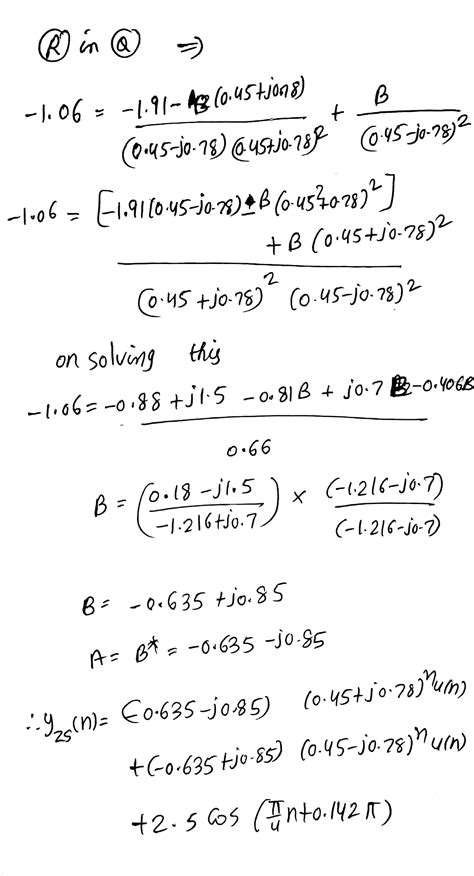 Ⓡ in Ⓠ ⇒
-1.06 = (-1.91 - B (0.45+j0.78)) / ((0.45-j0.78) (0.45+j0.78)²) + B / (0.45-j0.78)²
-1.06 = [-1.91(0.45-j0.78) + B (0.45²+0.78)²] + B (0.45+j0.78)² / (0.45+j0.78)² (0.45-j0.78)²
on solving this
-1.06 = (-0.88 + j1.5 - 0.81B + j0.7 B - 0.406B) / 0.66
B = ((0.18 - j1.5) / (-1.216+j0.7)) × (-1.216-j0.7) / (-1.216-j0.7)
B = -0.635 + j0.85
A = B* = -0.635 - j0.85
∴ y₂ₛ(n) = (-0.635-j0.85) (0.45+j0.78)ⁿ u(n)
+(-0.635+j0.85) (0.45-j0.78)ⁿ u(n)
+2.5 cos (π/4 n+0.142π)